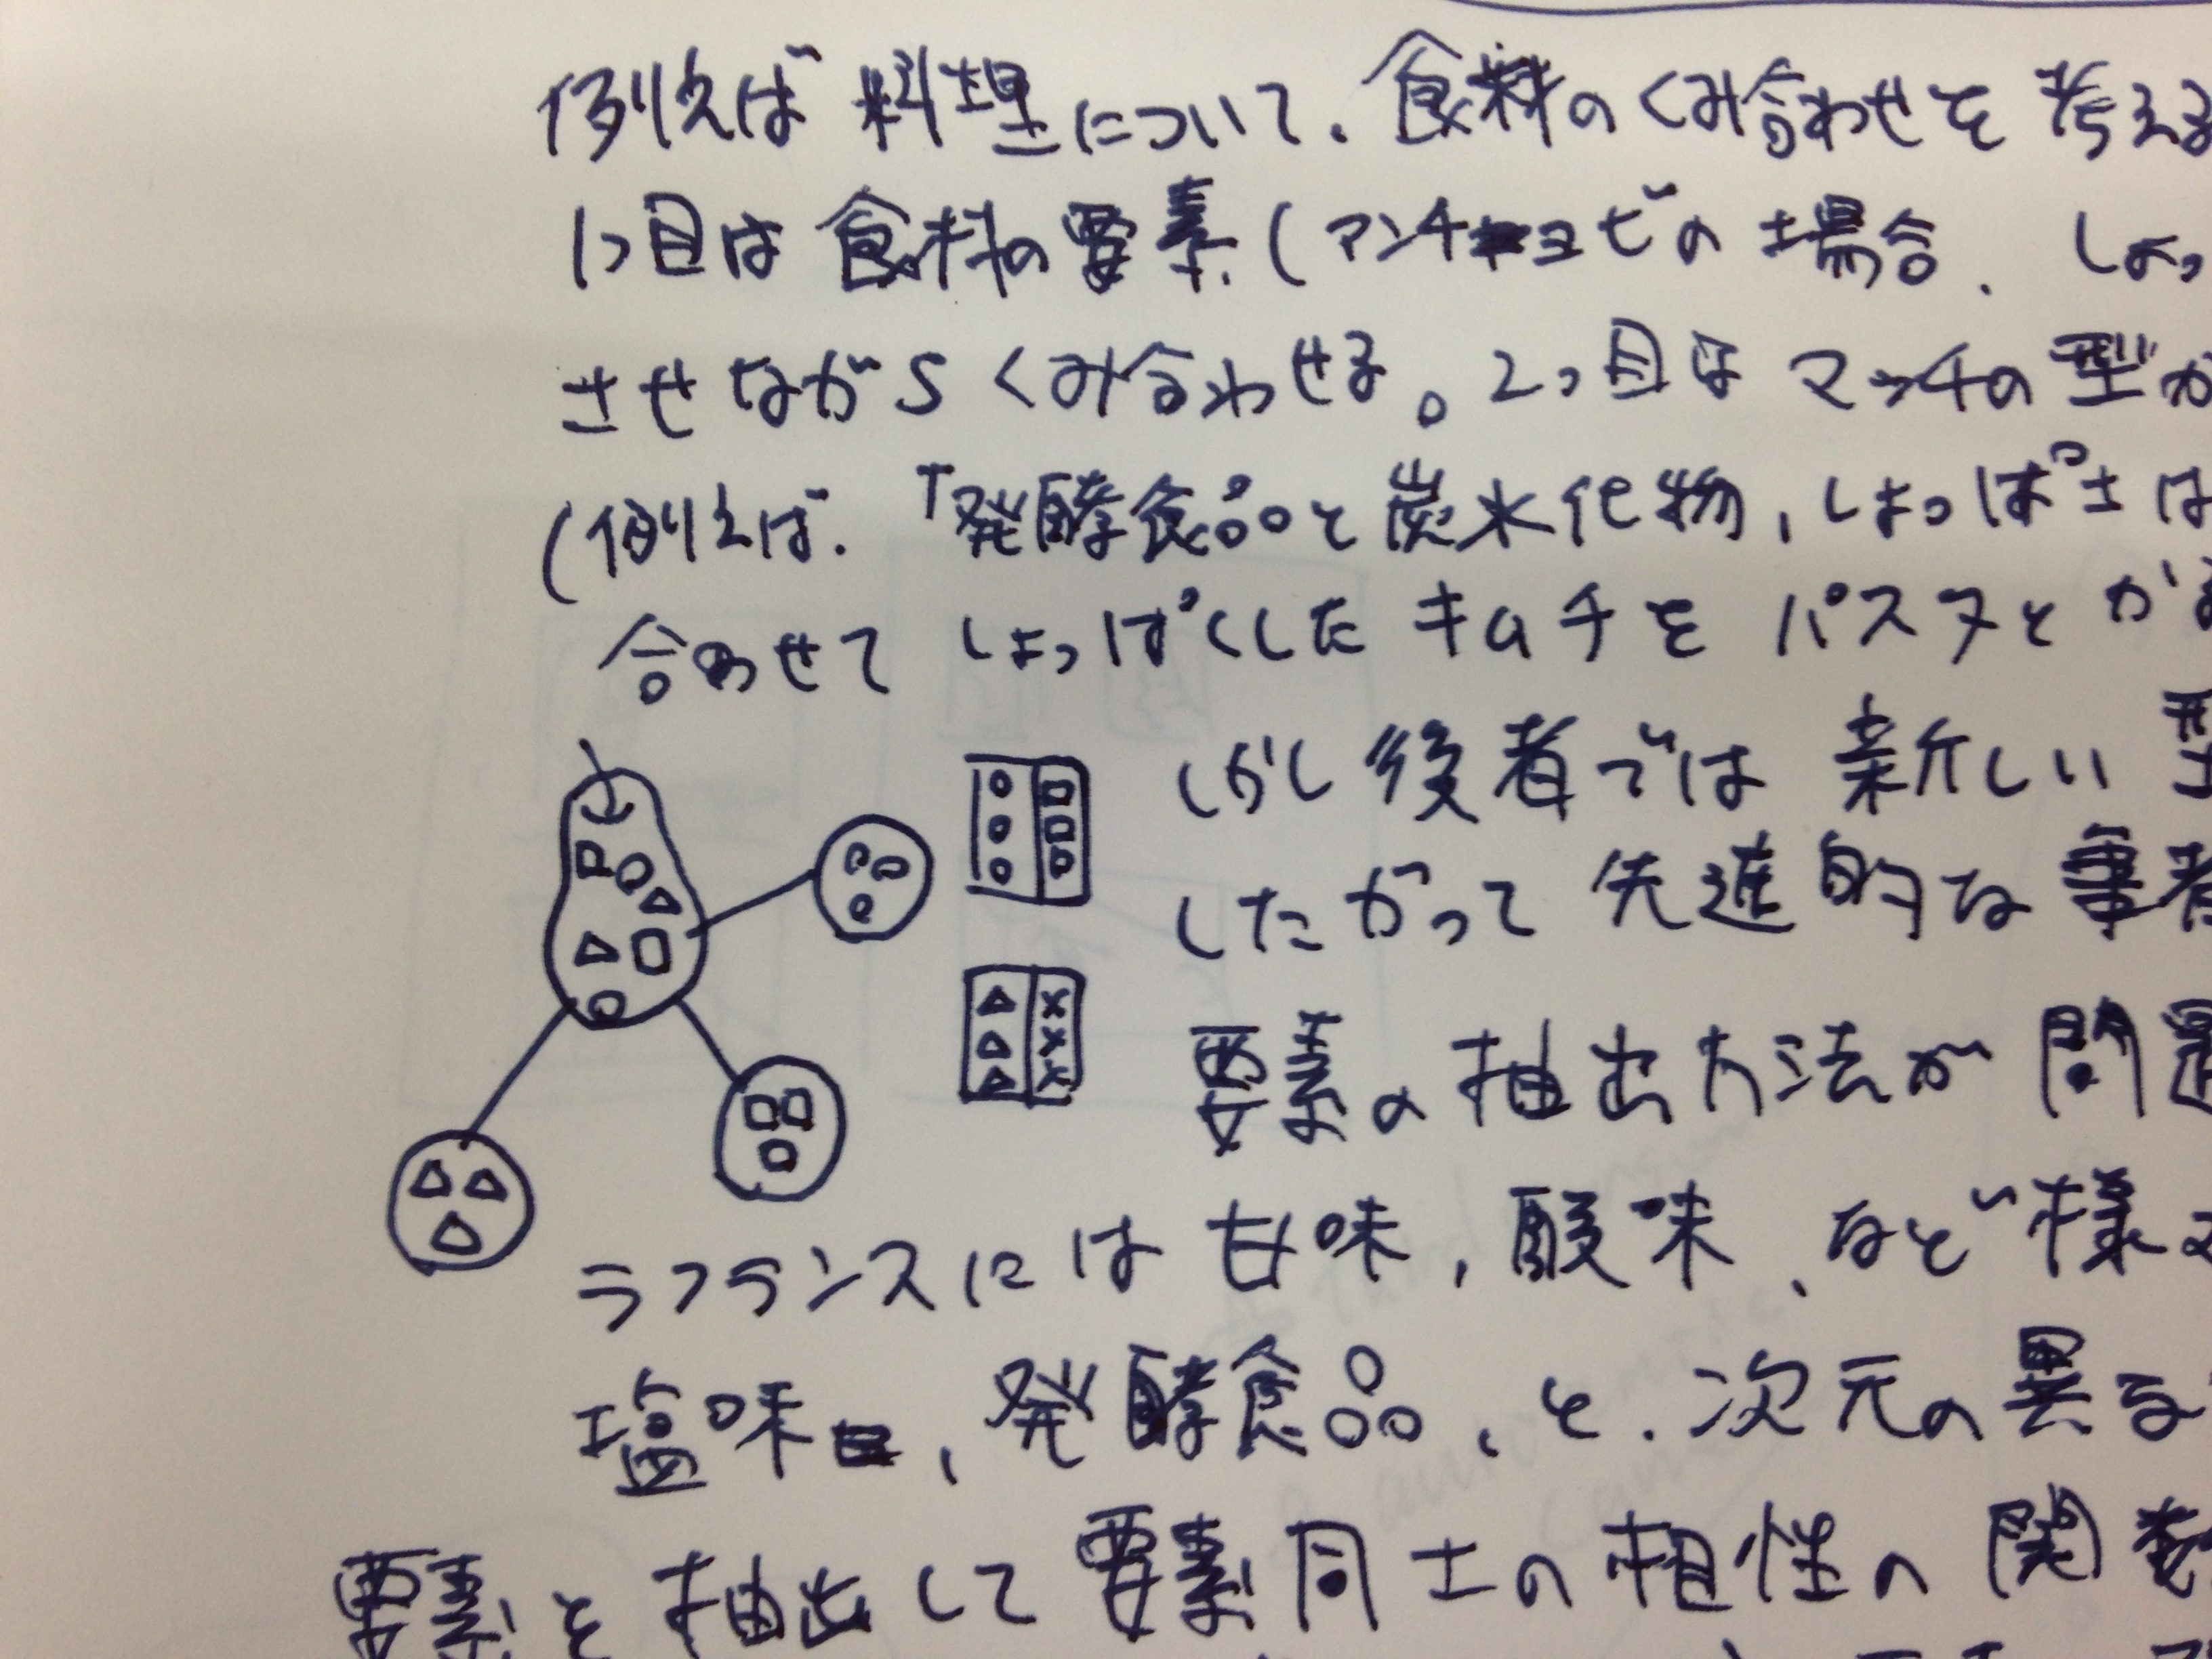 例えば料理について、食料のくみ合わせを考える
1つ目は食料の要素(アンチョビの場合、しょっ
させながらくみ合わせる。2つ目はマッチの型か
(例えば、「発酵食品と炭水化物、しょっぱさは
合わせてしょっぱくしたキムチをパスタとから
しかし後者では新しい型
したがって先進的な事
要素の抽出方法が問題
ラフランスには甘味、酸味、など様々
塩味、発酵食品、と、次元の異る
要素を抽出して要素同士の相性の関数